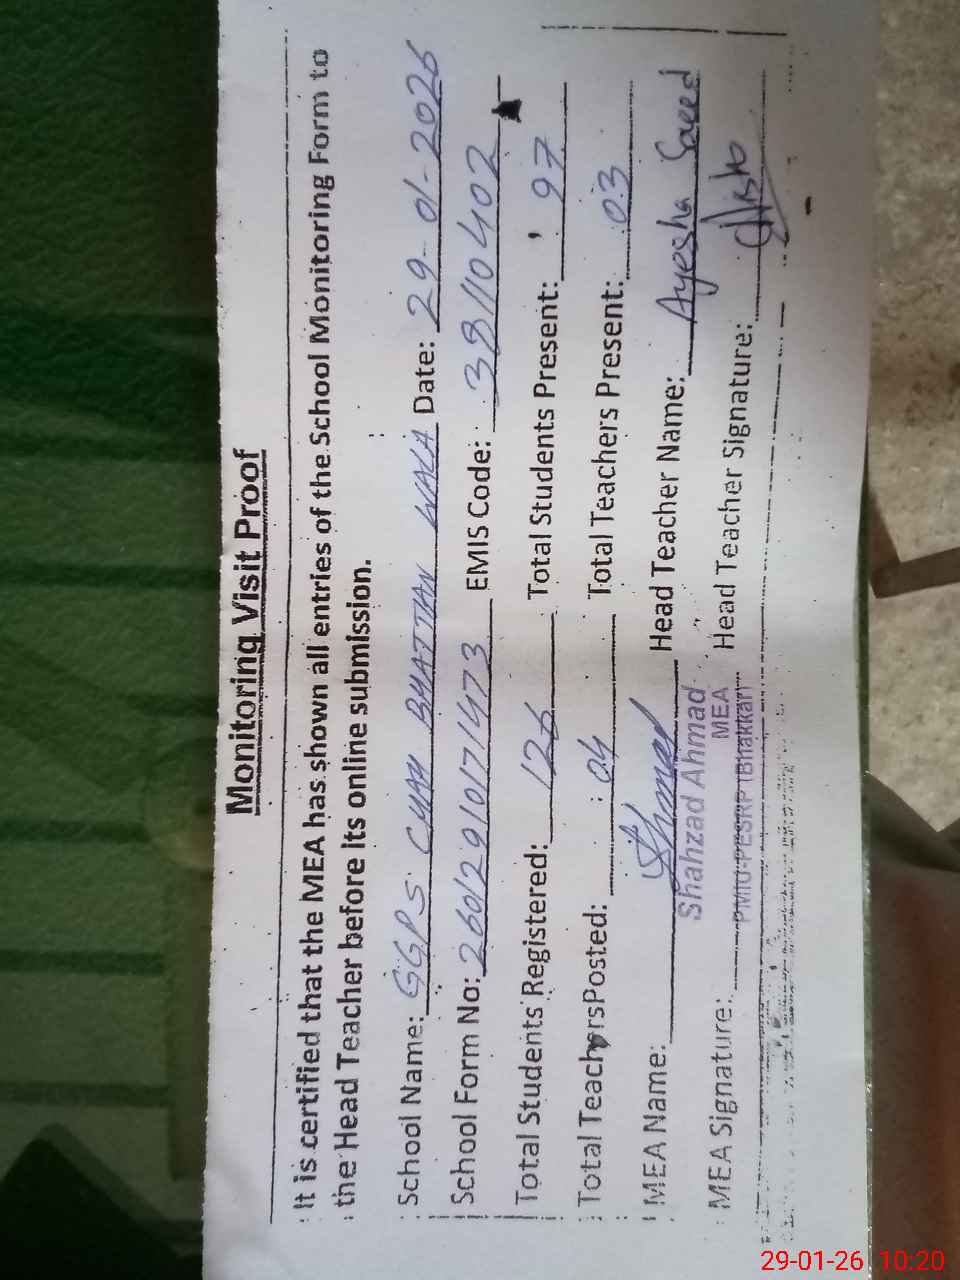 Monitoring Visit Proof
It is certified that the MEA has shown all entries of the School Monitoring Form to
the Head Teacher before its online submission.
School Name: GGPS CHAH BHATTIAN WALA Date: 29-01-2026
School Form No: 26012910171473 EMIS Code: 38110402
Total Students Registered: 126 Total Students Present: 97
Total Teachers Posted: 04 Total Teachers Present: 03
MEA Name: Head Teacher Name: Ayesha Saeed
Shahzad Ahmad
MEA
PMIU-PESRP (Bhakkar)
MEA Signature: Head Teacher Signature:
29-01-26 10:20